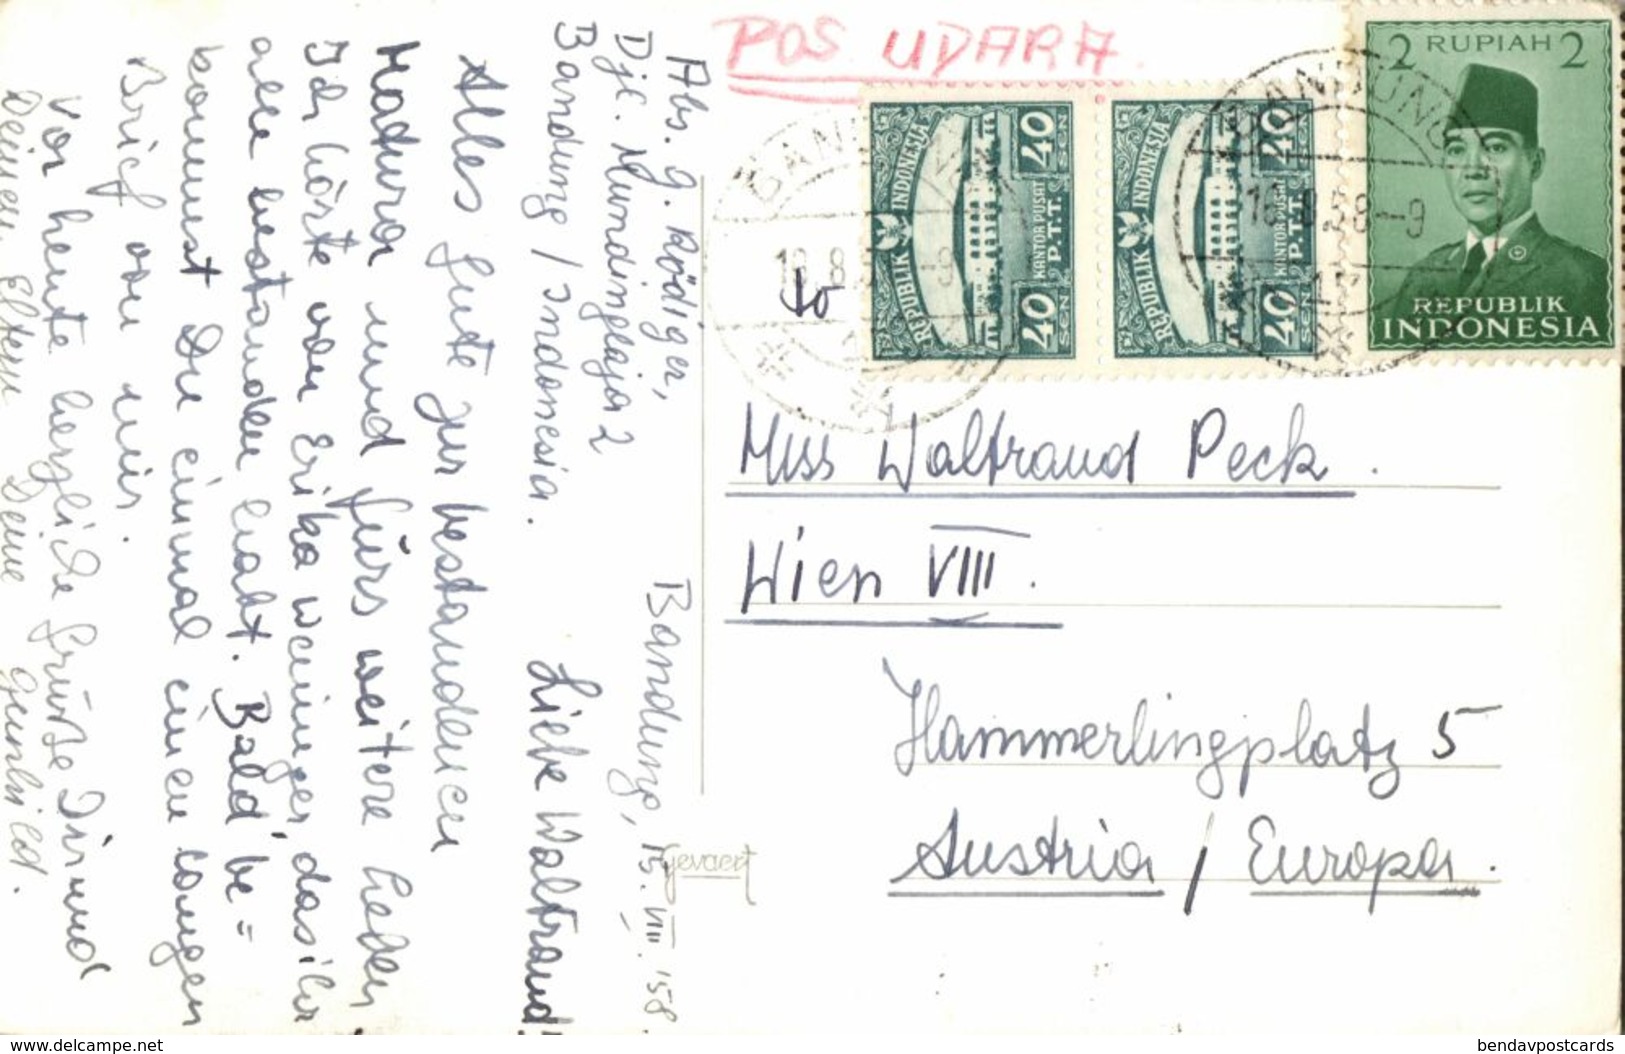 POS UDARA
2 RUPIAH 2
REPUBLIK
INDONESIA
40
SEN
REPUBLIK INDONESIA
KANTOR PUSAT
P.T.T.
40
40
SEN
REPUBLIK INDONESIA
KANTOR PUSAT
P.T.T.
40
BANDUNG
18.8.58-9
to
Miss Waltraud Peck.
Wien VIII.
Hammerlingplatz 5
Austria / Europa.
Gevaert
Abs. G. Rödiger,
Djl. Mundinglaja 2
Bandung / Indonesia.
Bandung, 15.VIII.'58.
Liebe Waltraud!
Alles Gute zur bestandenen
Matura und fürs weitere Leben
Ich hörte von Erika Weninger, dass ihr
alle bestanden habt. Bald be=
kommst Du einmal einen langen
Brief von mir.
Vor heute herzliche Grüsse Dir und
Deinen Eltern Deine Gunhild.
www.delcampe.net
bendavpostcards